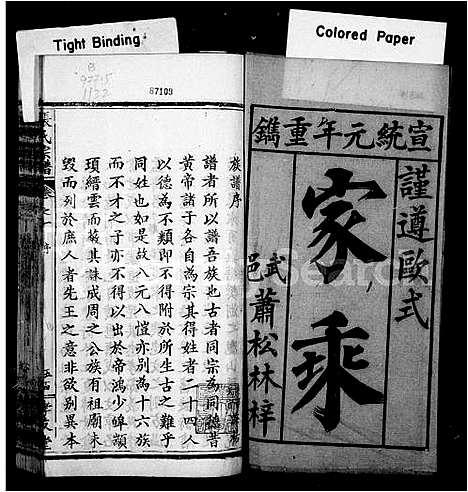 Tight Binding
Colored Paper
B
97215
1132
87109
宣統元年重鐫
謹遵歐式
家乘
武邑蕭松林梓
族譜序
譜者所以譜吾族也古者同宗為同德昔
黃帝諸子各自為宗其得姓者二十四人
以德為不類即不得附於所生古之難乎
同姓也如是故八元八愷亦別為十六族
而不才之子亦不得以出於帝鴻少皞顓
頊縉雲而蔽其誅成周之公族有祖廟未
毀而列於庶人者先王之意非欲別異本
氏宗譜
卷之
序